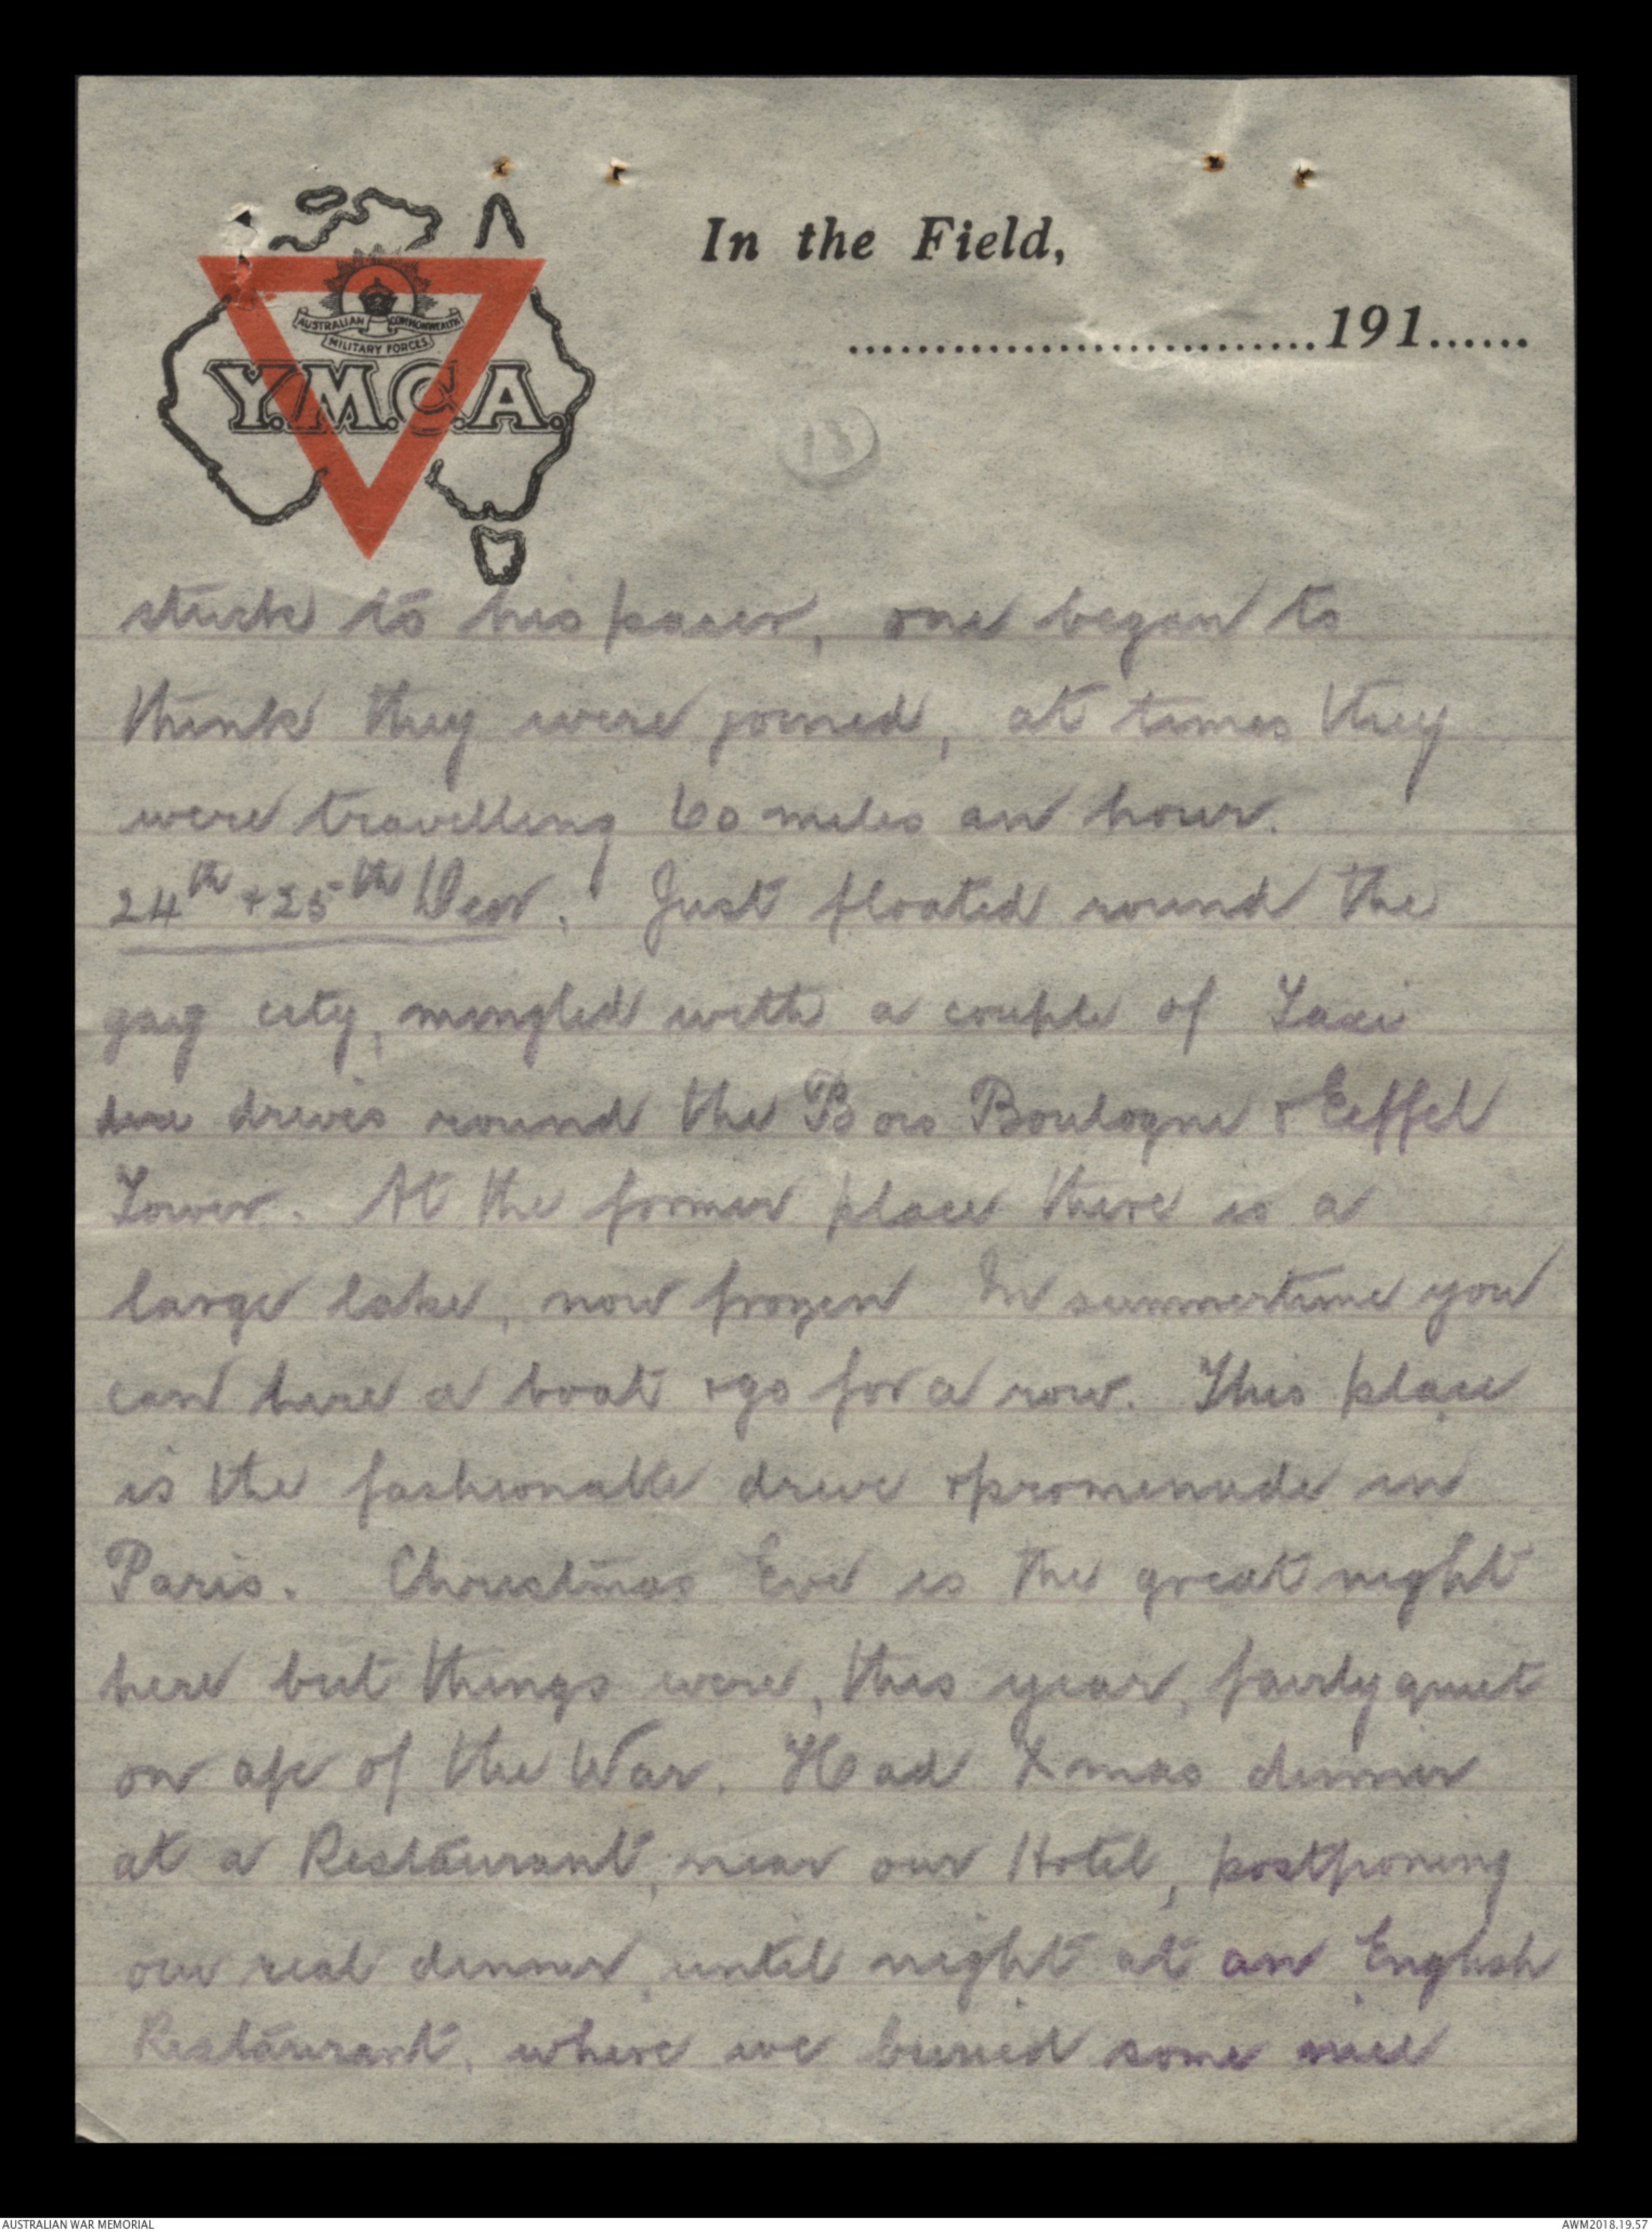 In the Field,
............................191......
AUSTRALIAN COMMONWEALTH
MILITARY FORCES
Y.M.C.A.
13
stuck to his pacer, one began to
think they were joined, at times they
were travelling 60 miles an hour.
24th + 25th Decr. Just floated round the
gay city, mingled with a couple of Taxi
drives round the Bois Boulogne & Eiffel
Tower. At the former place there is a
large lake, now frozen In summertime you
can hire a boat & go for a row. This place
is the fashionable drive & promenade in
Paris. Christmas Eve is the great night
here but things were, this year, fairly quiet
on a/c of the War. Had Xmas dinner
at a Restaurant, near our Hotel, postponing
our real dinner, until night at an English
Restaurant, where we buried some nice
AUSTRALIAN WAR MEMORIAL
AWM2018.19.57